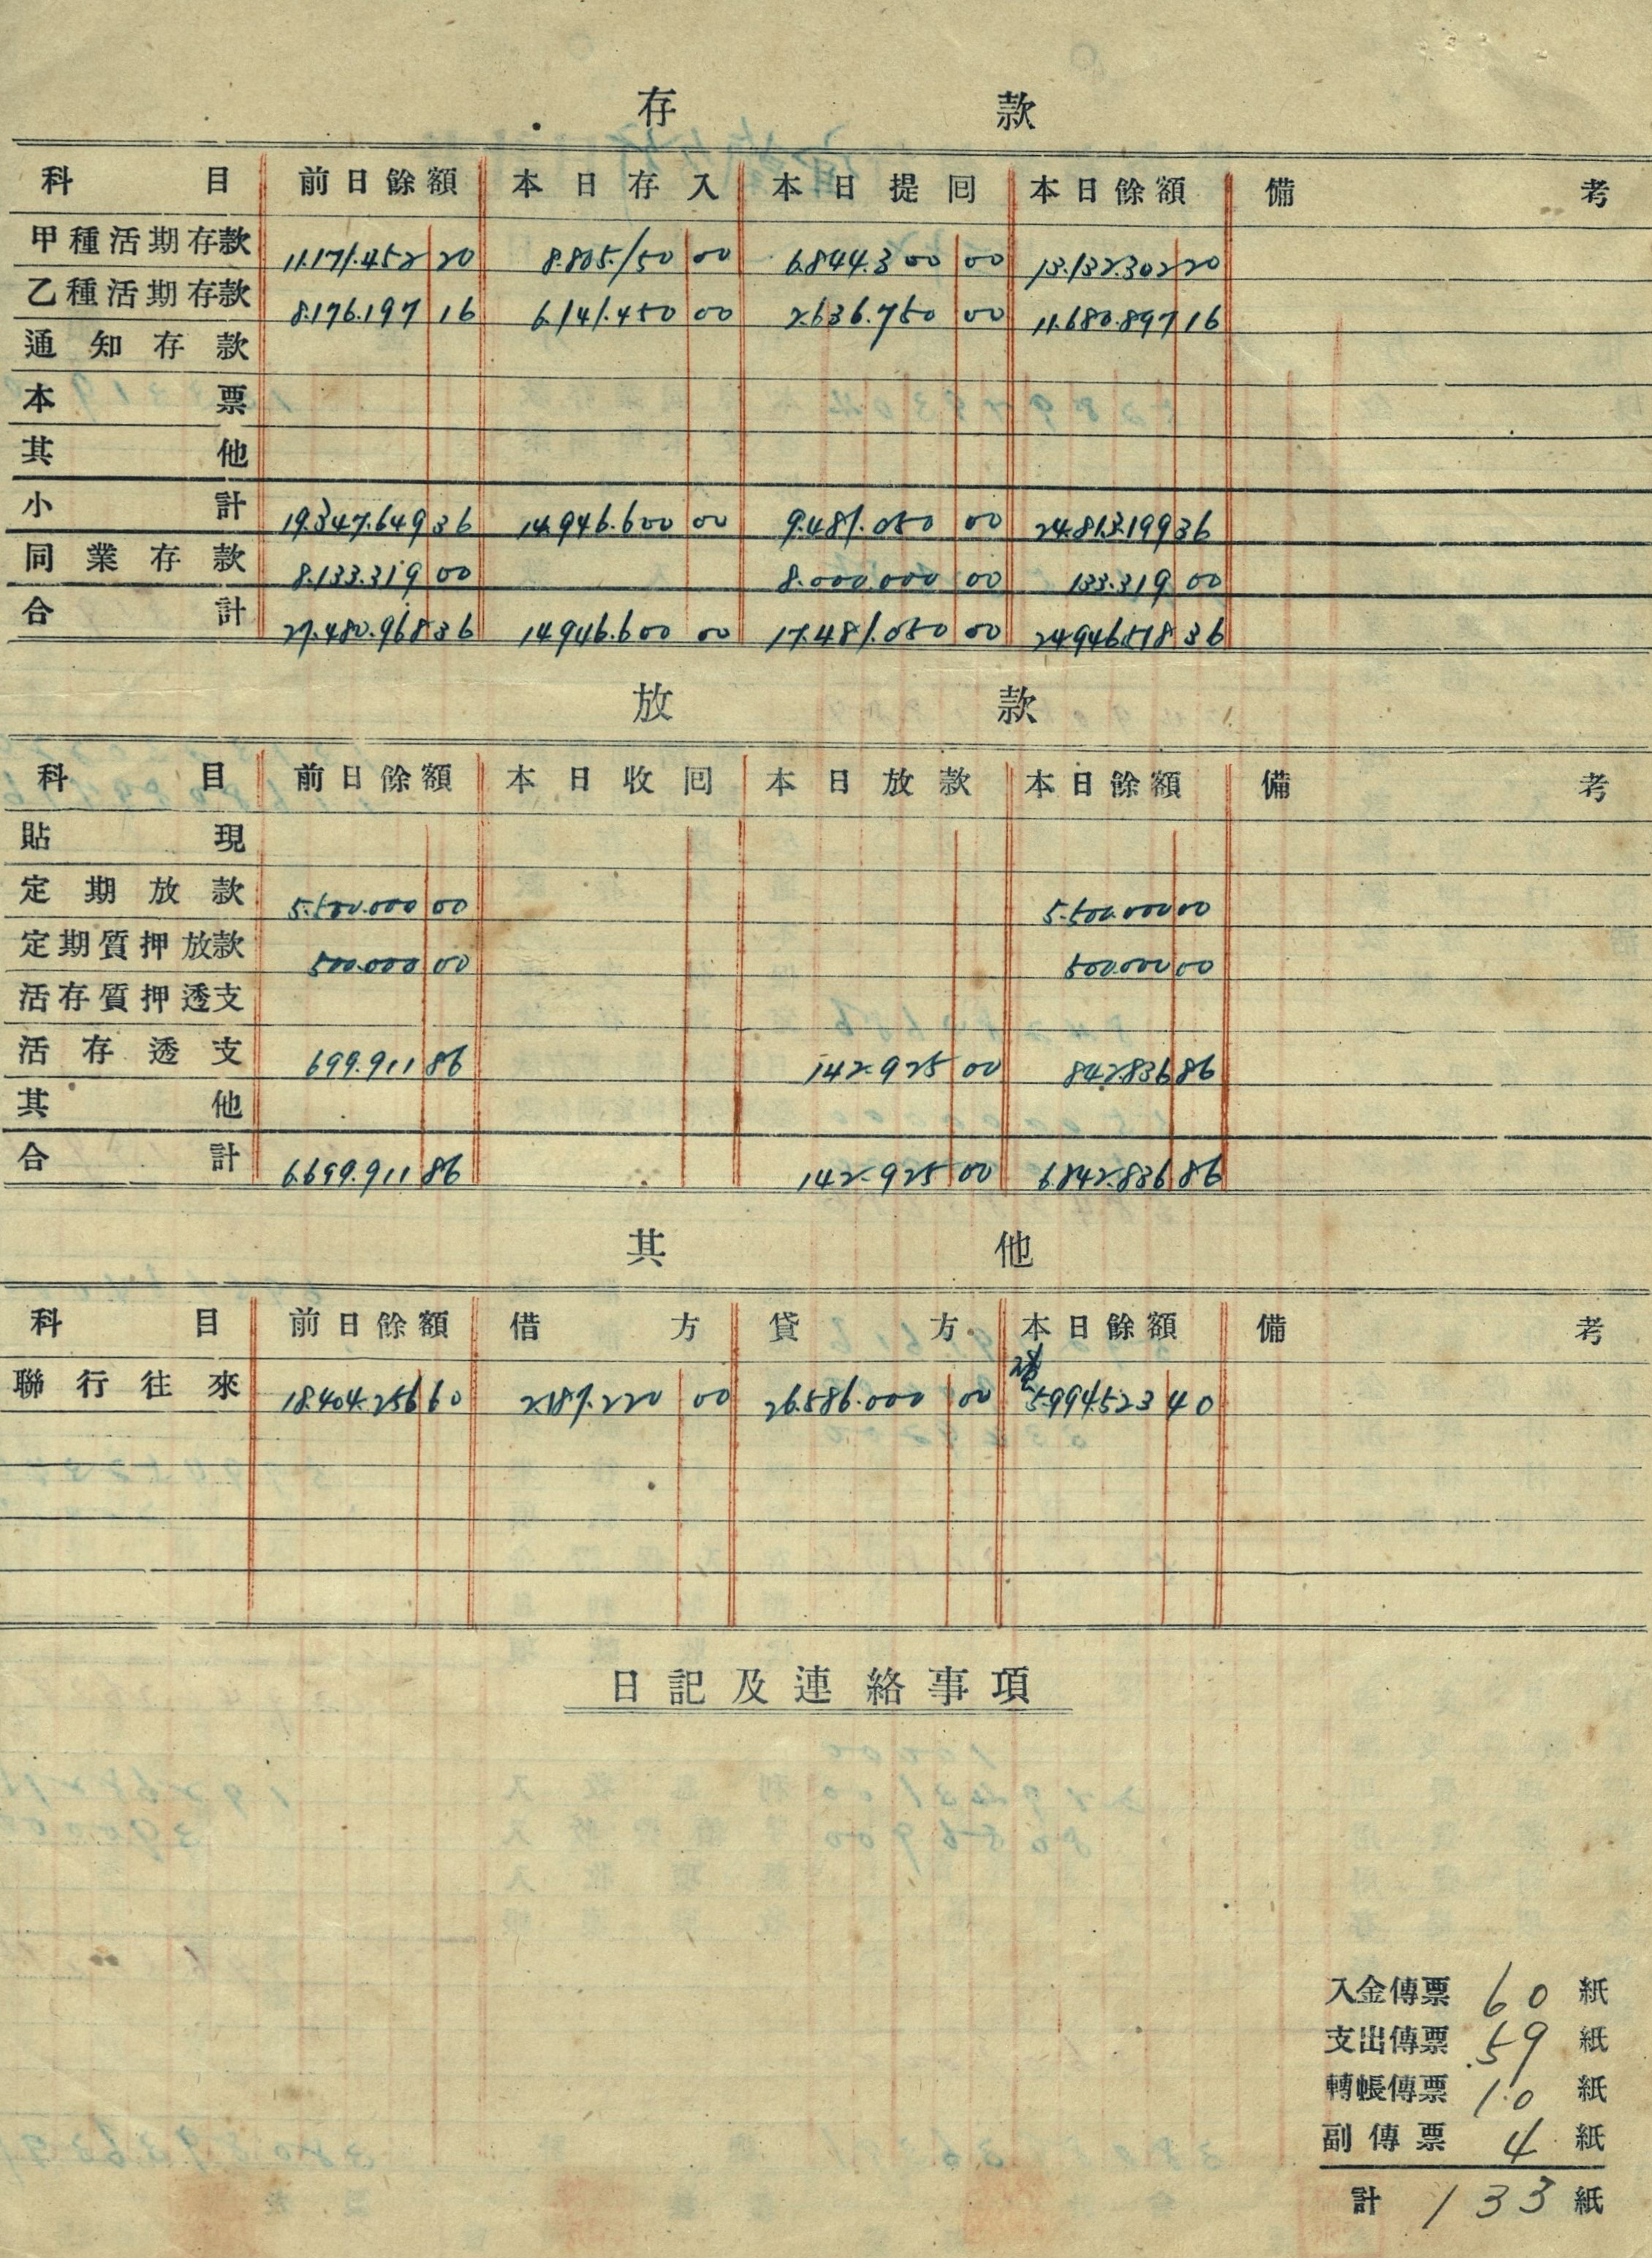 存款
科目 前日餘額 本日存入 本日提囘 本日餘額 備考
甲種活期存款 11.171.452 20 8.805.150 00 6.844.300 00 13.132.302 20
乙種活期存款 8.176.197 16 6.141.450 00 2.636.750 00 11.680.897 16
通知存款
本票
其他
小計 19.347.649 36 14.946.600 00 9.481.050 00 24.813.199 36
同業存款 8.133.319 00 8.000.000 00 133.319 00
合計 27.480.968 36 14.946.600 00 17.481.050 00 24.946.518 36
放款
科目 前日餘額 本日收囘 本日放款 本日餘額 備考
貼現
定期放款 5.500.000 00 5.500.000 00
定期質押放款 500.000 00 500.000 00
活存質押透支
活存透支 699.911 86 142.925 00 842.836 86
其他
合計 6.699.911 86 142.925 00 6.842.836 86
其他
科目 前日餘額 借方 貸方 本日餘額 備考
聯行往來 18.404.256 60 2.187.220 00 26.586.000 00 5.994.523 40
日記及連絡事項
入金傳票 60 紙
支出傳票 59 紙
轉帳傳票 10 紙
副傳票 4 紙
計 133 紙